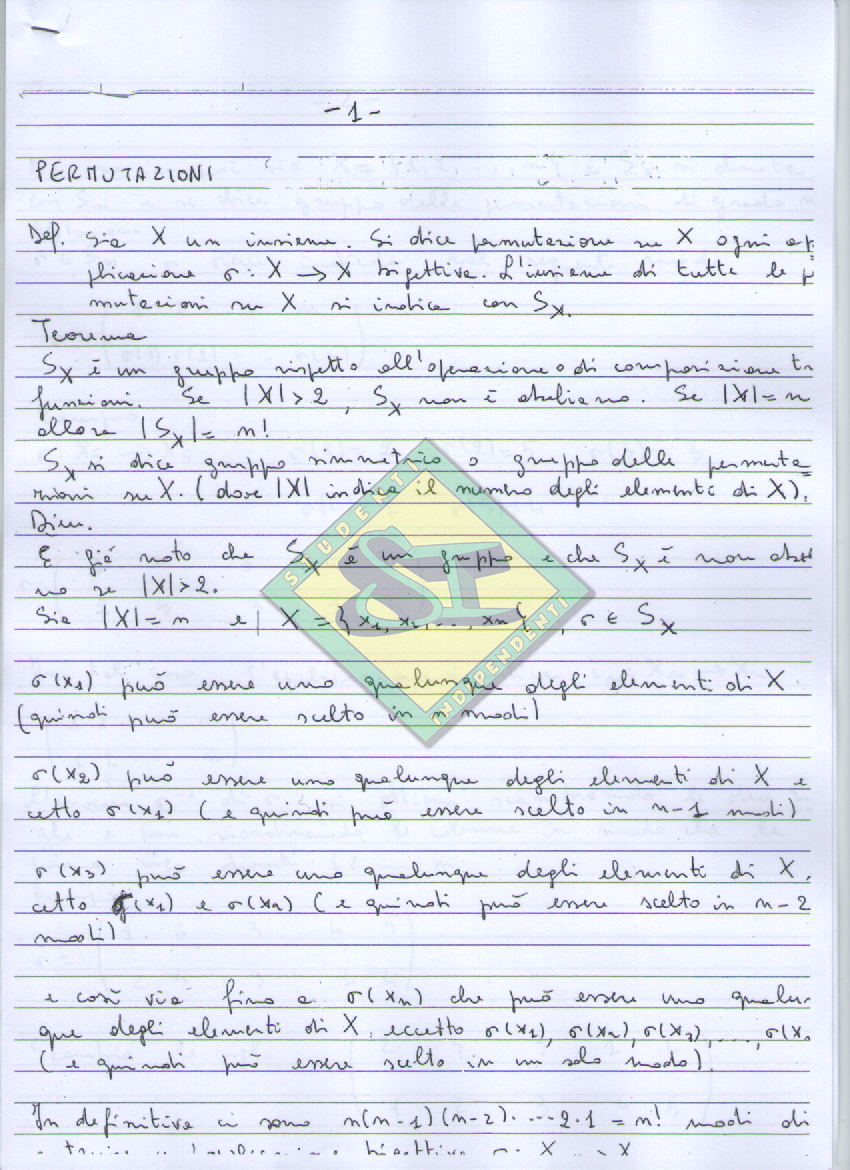 -1-
PERMUTAZIONI
Def. Sia X un insieme. Si dice permutazione su X ogni ap
plicazione σ: X → X bigettiva. L'insieme di tutte le p
mutazioni su X si indica con S_X.
Teorema
S_X è un gruppo rispetto all'operazione o di composizione tr
funzioni. Se |X|>2, S_X non è abeliano. Se |X|=n
allora |S_X|= n!
S_X si dice gruppo simmetrico o gruppo delle permuta=
zioni su X. (dove |X| indica il numero degli elementi di X).
Dim.
È già noto che S_X è un gruppo e che S_X è non abel
no se |X|>2.
Sia |X|=n e X = {x1, x2, ..., xn}, σ ∈ S_X
σ(x1) può essere uno qualunque degli elementi di X.
(quindi può essere scelto in n modi)
σ(x2) può essere uno qualunque degli elementi di X e
cetto σ(x1) (e quindi può essere scelto in n-1 modi)
σ(x3) può essere uno qualunque degli elementi di X.
cetto σ(x1) e σ(x2) (e quindi può essere scelto in n-2
modi)
e così via fino a σ(xn) che può essere uno qualun
que degli elementi di X, eccetto σ(x1), σ(x2), σ(x3), ..., σ(x
(e quindi può essere scelto in un solo modo).
In definitiva ci sono n(n-1)(n-2)· ...2·1 = n! modi di
STUDENTI
SI
INDIPENDENTI